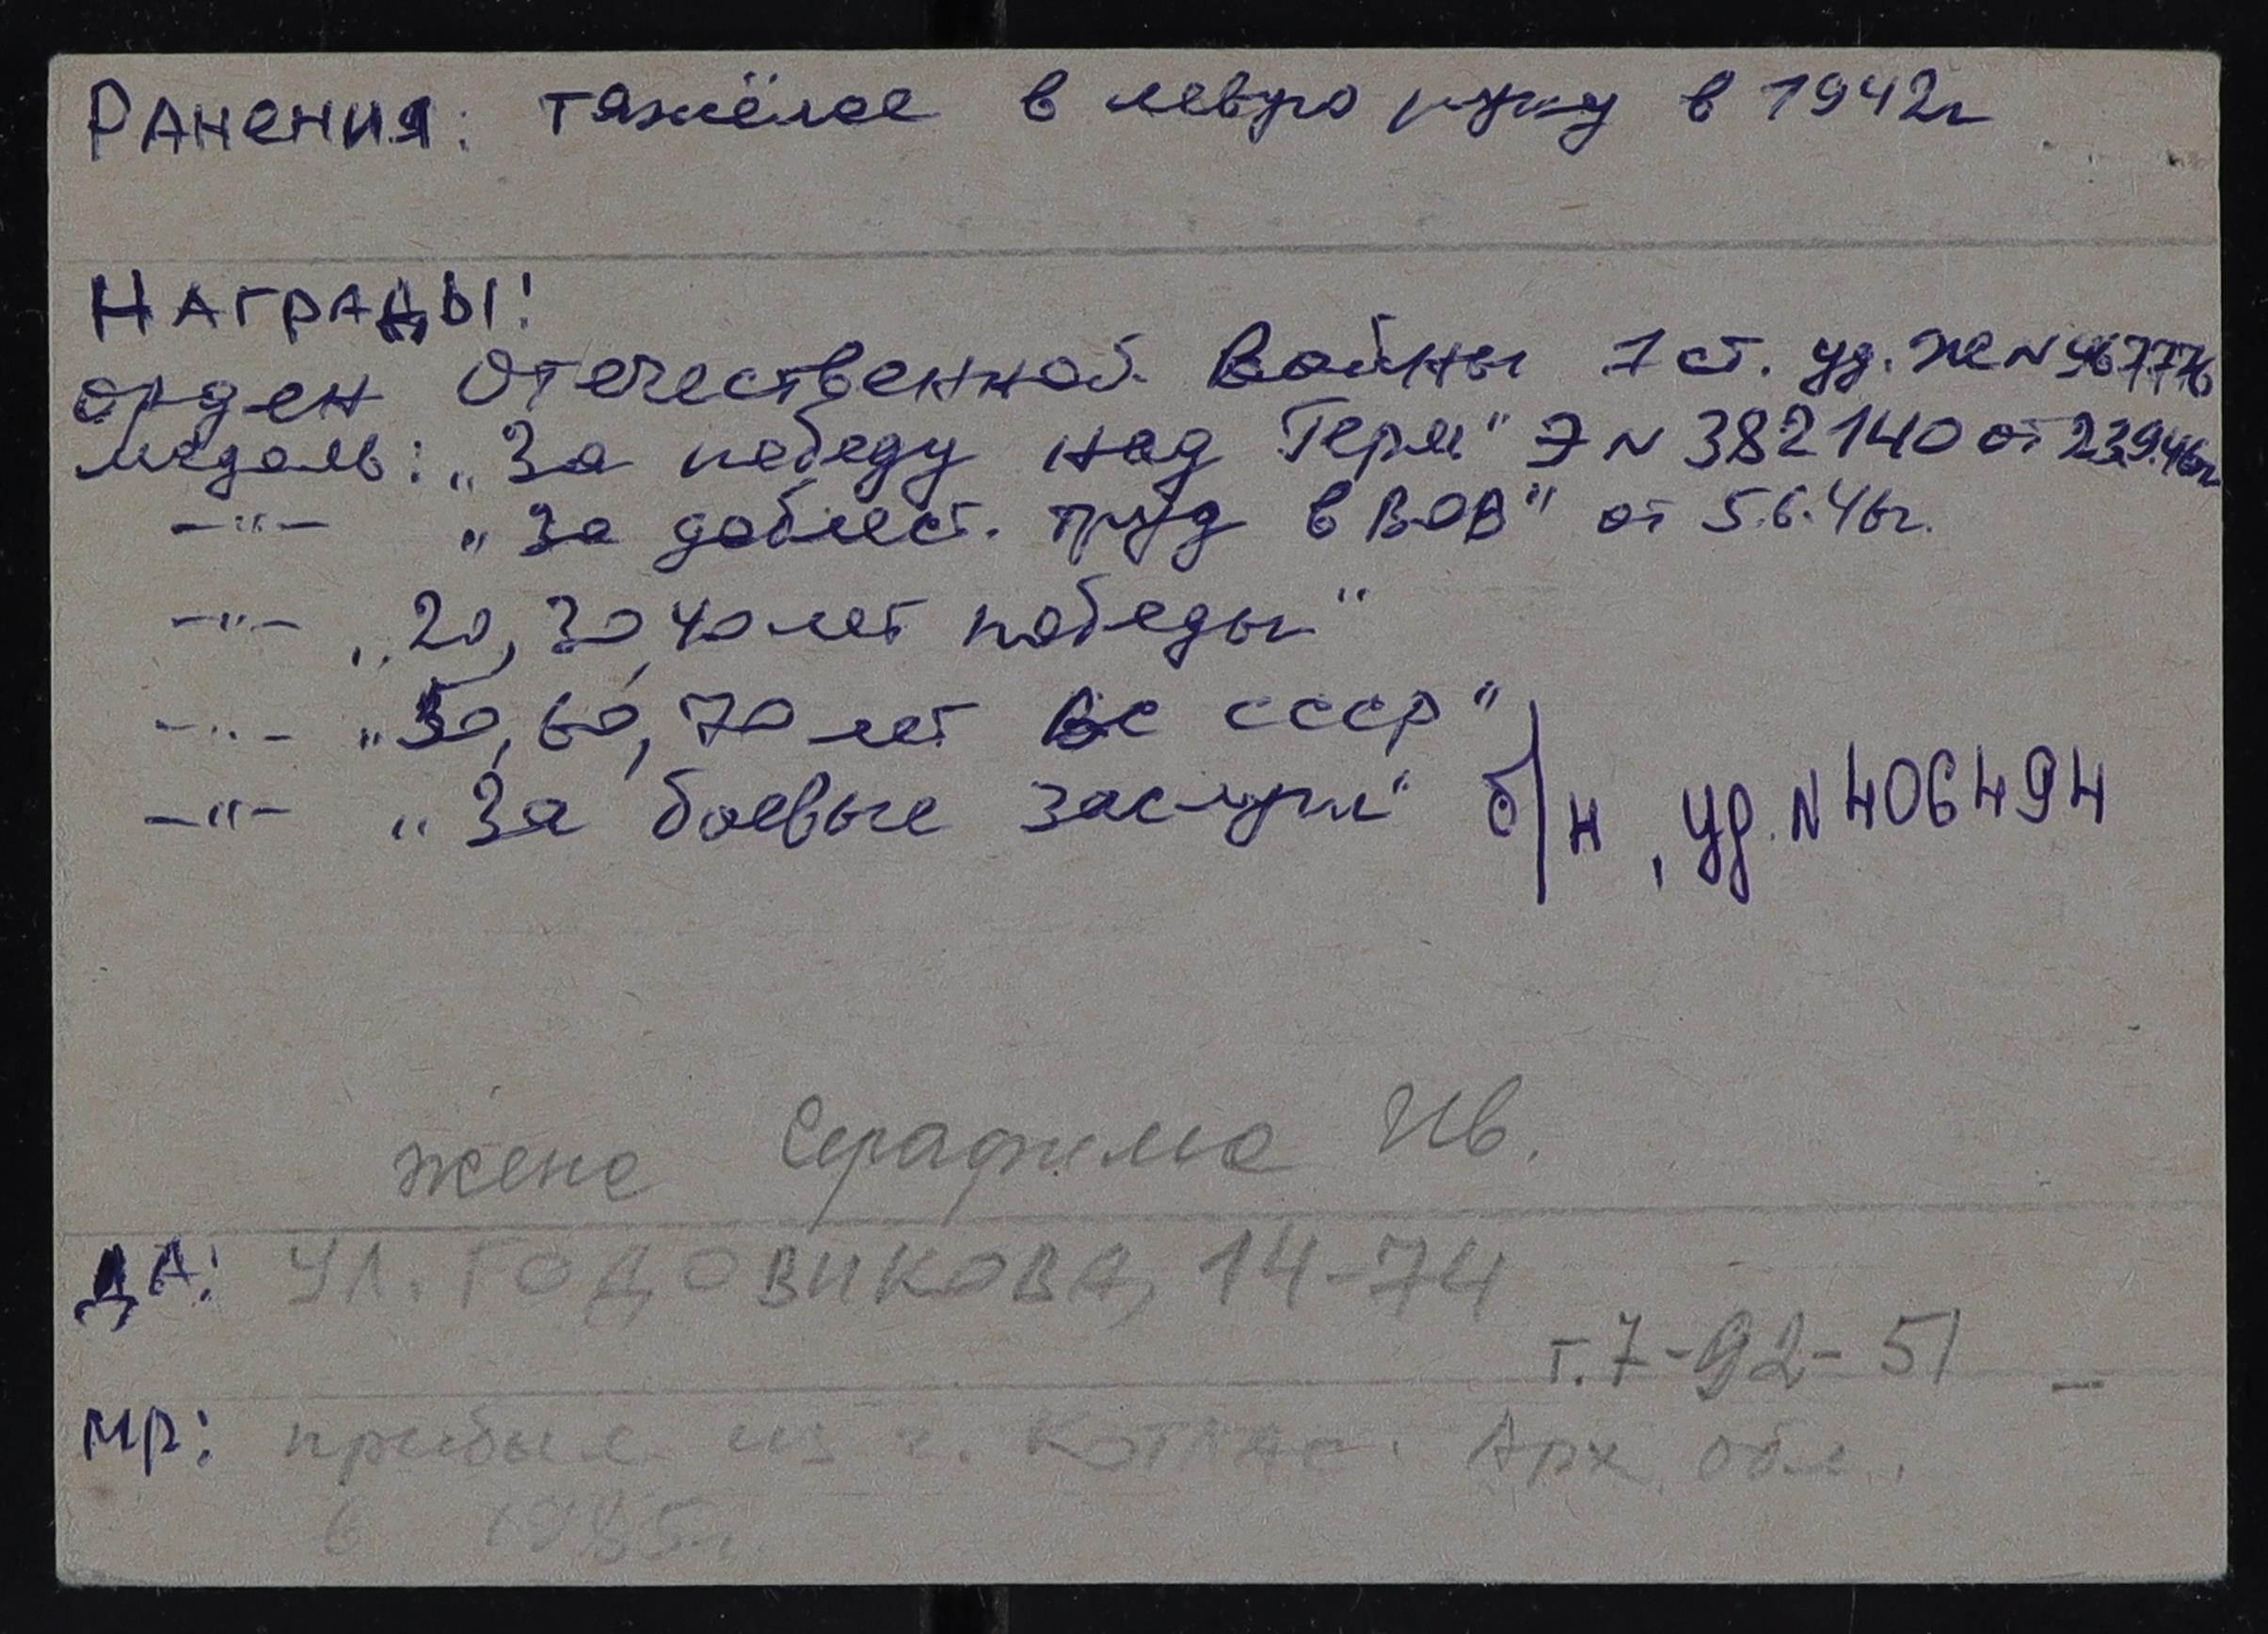 Ранения: тяжёлое в левую руку в 1942г
Награды!
орден Отечественной Войны 1 ст. уд. Ж N 967776
медаль: „За победу над Герм" Э N 382140 от 23.9.46г
—"— „За доблест. труд в ВОВ" от 5.6.46г.
—"— „20, 30, 40 лет победы"
—"— „50, 60, 70 лет ВС СССР"
—"— „За боевые заслуги" б/н, уд. N 406494
жена Серафима Ив.
ДА: ул. Годовикова, 14-74
т. 7-92-51 —
МР: прибыл из г. Котлас. Арх. обл.
в 1985г.